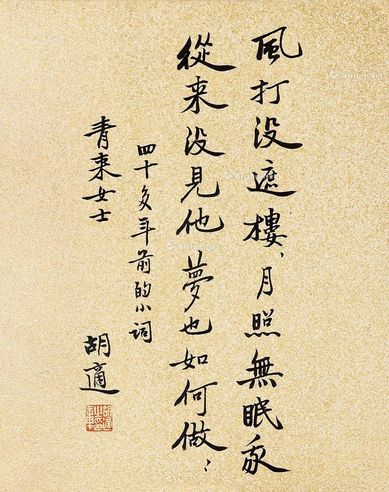 風打没遮樓、月照無眠我
從来没見他夢也如何做；
四十多年前的小詞
青来女士
胡適